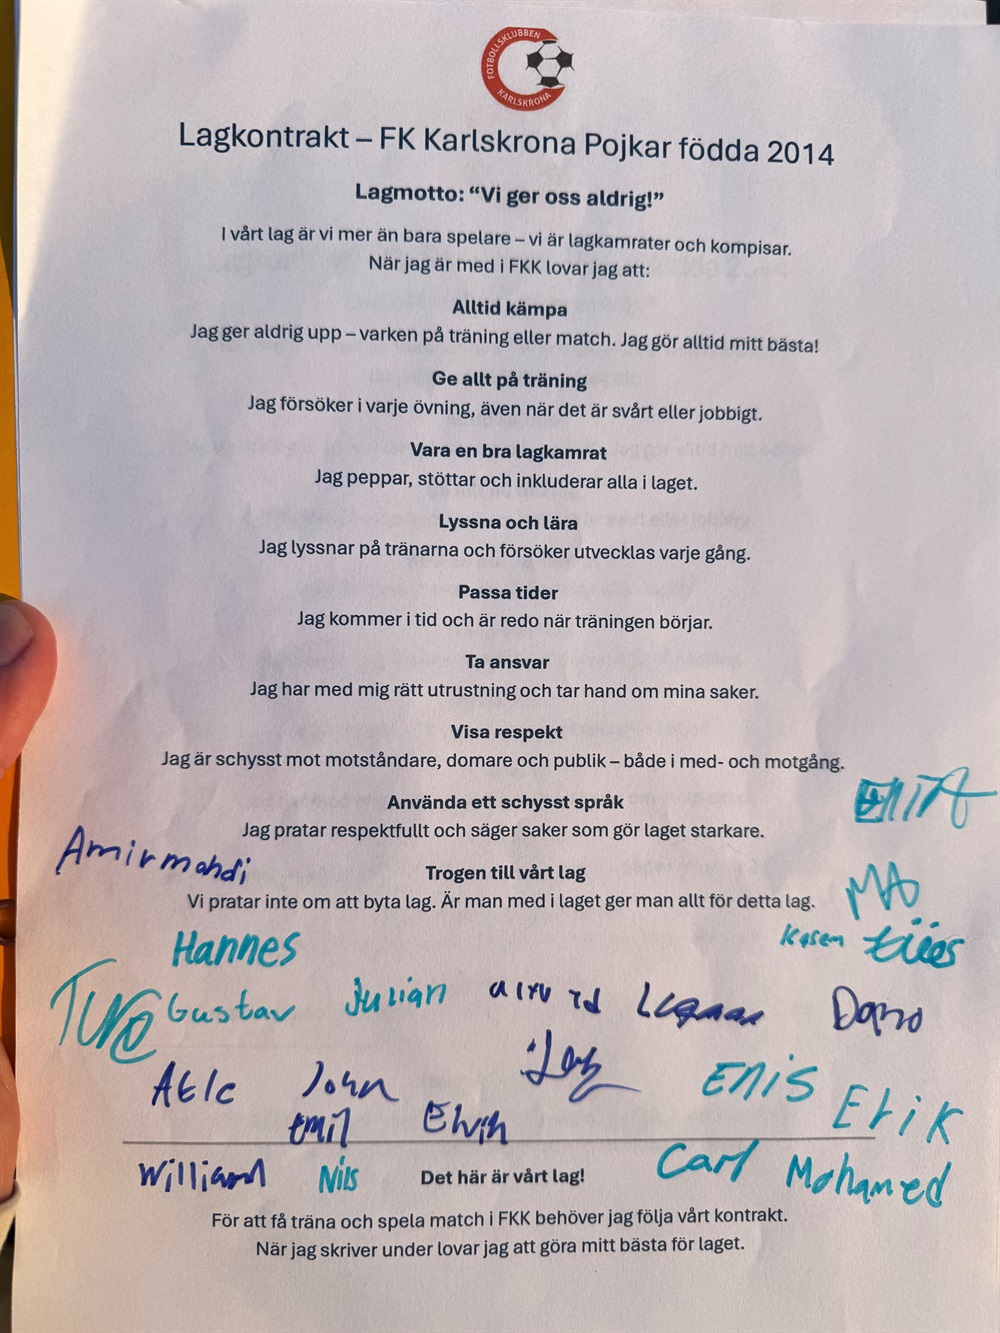 FOTBOLLSKLUBBEN
KARLSKRONA
Lagkontrakt – FK Karlskrona Pojkar födda 2014
Lagmotto: “Vi ger oss aldrig!”
I vårt lag är vi mer än bara spelare – vi är lagkamrater och kompisar.
När jag är med i FKK lovar jag att:
Alltid kämpa
Jag ger aldrig upp – varken på träning eller match. Jag gör alltid mitt bästa!
Ge allt på träning
Jag försöker i varje övning, även när det är svårt eller jobbigt.
Vara en bra lagkamrat
Jag peppar, stöttar och inkluderar alla i laget.
Lyssna och lära
Jag lyssnar på tränarna och försöker utvecklas varje gång.
Passa tider
Jag kommer i tid och är redo när träningen börjar.
Ta ansvar
Jag har med mig rätt utrustning och tar hand om mina saker.
Visa respekt
Jag är schysst mot motståndare, domare och publik – både i med- och motgång.
Använda ett schysst språk
Jag pratar respektfullt och säger saker som gör laget starkare.
Amirmahdi
Trogen till vårt lag
Vi pratar inte om att byta lag. Är man med i laget ger man allt för detta lag.
MA
Hannes
Kasem
Gustav Julian
Atle John Enis Erik
Emil Elvin
William Nils Det här är vårt lag! Carl Mohamed
För att få träna och spela match i FKK behöver jag följa vårt kontrakt.
När jag skriver under lovar jag att göra mitt bästa för laget.